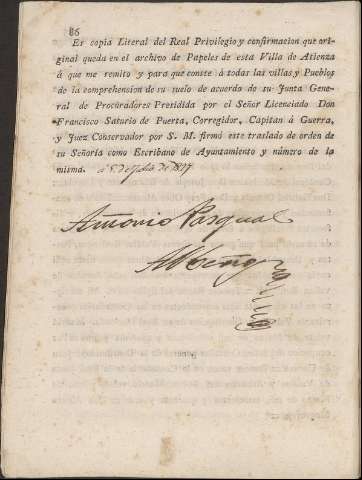 86
Es copia Literal del Real Privilegio y confirmacion que ori-
ginal queda en el archivo de Papeles de esta Villa de Atienza
á que me remito y para que conste á todas las villas y Pueblos
de la comprehension de su suelo de acuerdo de su Junta Gene-
ral de Procuradores Presidida por el Señor Licenciado Don
Francisco Saturio de Puerta, Corregidor, Capitan á Guerra,
y Juez Conservador por S. M. firmó este traslado de orden de
su Señoria como Escribano de Ayuntamiento y número de la
misma. a 8 de Julio de
Antonio Pasqual